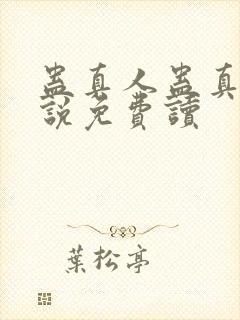 蠱真人蠱真
說免費讀
葉松亭